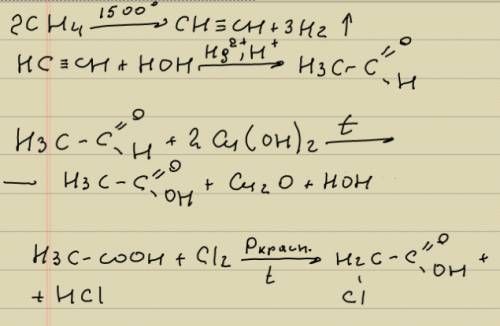 2CH4 1500° → CH≡CH + 3H2 ↑
HC≡CH + HOH Hg2+, H+ → H3C-C=O H
H3C-C=O H + 2Cu(OH)2 t →
— H3C-C=O OH + Cu2O + HOH
H3C-COOH + Cl2 Pкрасн. t → H2C-C=O OH +
Cl
+ HCl